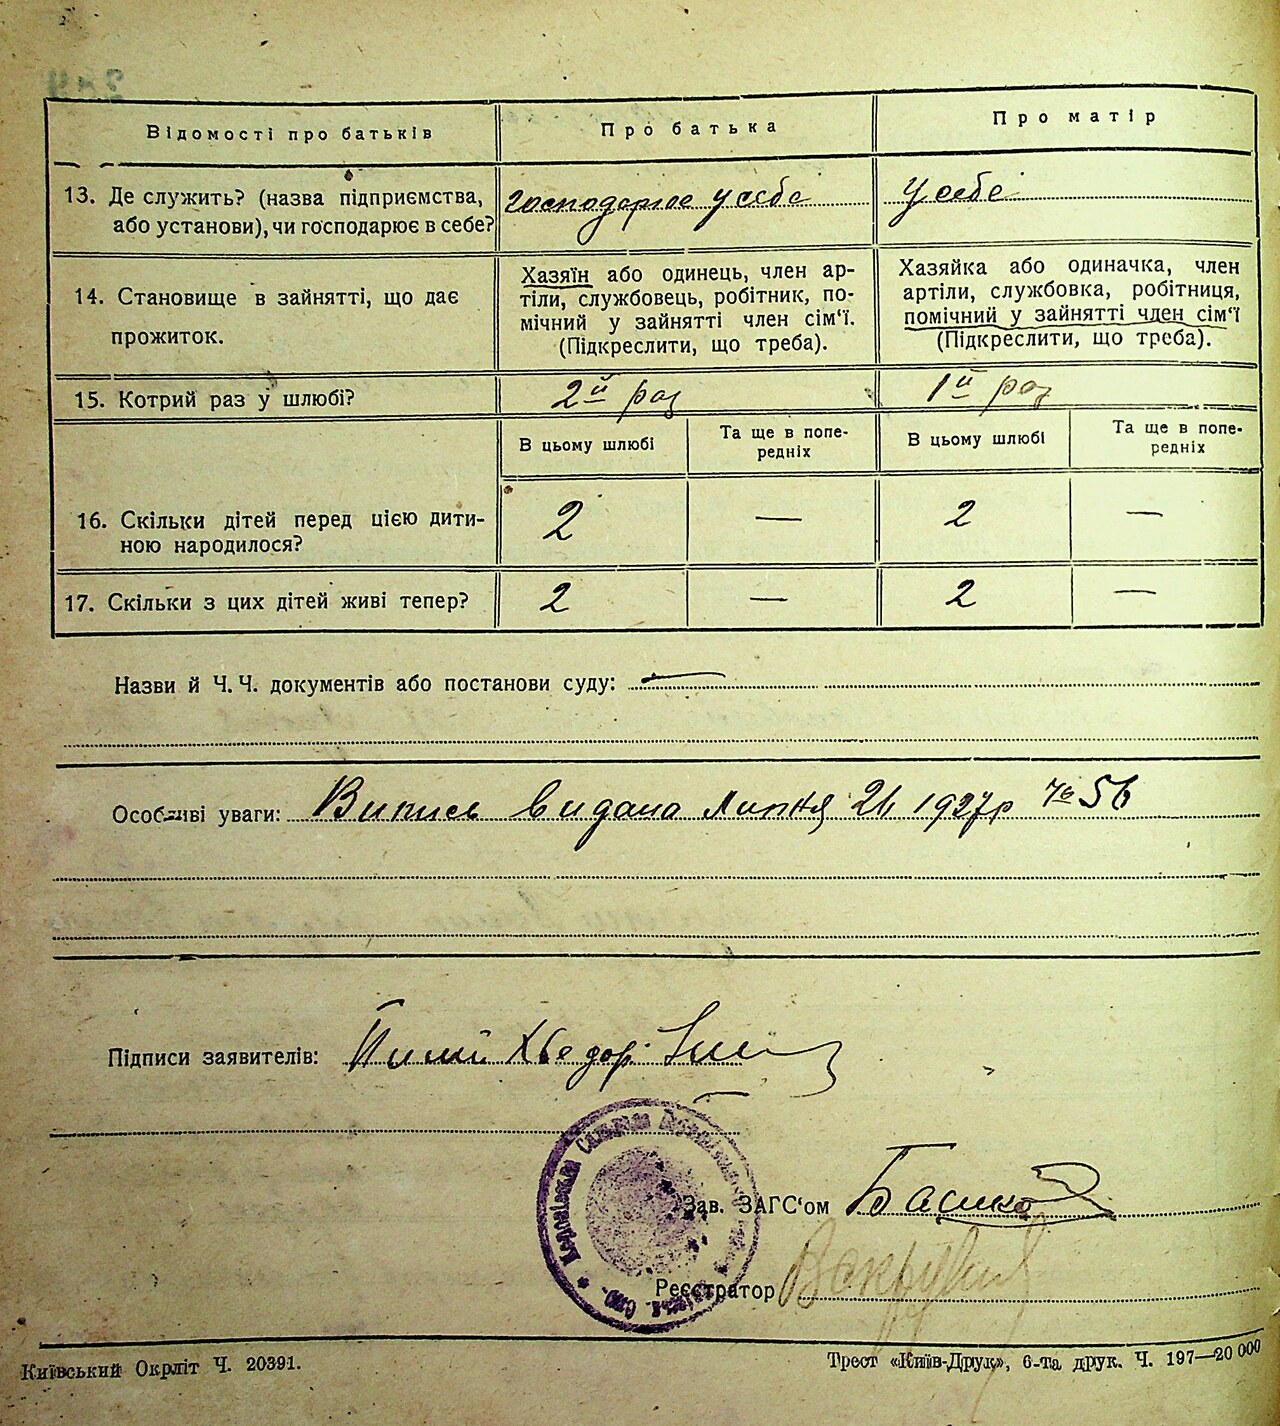 Відомості про батьків
Про батька
Про матір
13. Де служить? (назва підприємства,
або установи), чи господарює в себе?
господарює у себе
у себе
14. Становище в зайнятті, що дає
прожиток.
Хазяїн або одинець, член ар-
тіли, службовець, робітник, по-
мічний у зайнятті член сім‘ї.
(Підкреслити, що треба).
Хазяйка або одиначка, член
артіли, службовка, робітниця,
помічний у зайнятті член сім‘ї
(Підкреслити, що треба).
15. Котрий раз у шлюбі?
2й раз
1й раз
В цьому шлюбі
Та ще в попе-
редніх
В цьому шлюбі
Та ще в попе-
редніх
16. Скільки дітей перед цією дити-
ною народилося?
2 — 2 —
17. Скільки з цих дітей живі тепер?
2 — 2 —
Назви й Ч. Ч. документів або постанови суду: —
Особливі уваги: Випись видана липня 1927р 56
Підписи заявителів: Хведор
Зав. ЗАГС‘ом
Реєстратор
Київський Окрліт Ч. 20391.
Трест «Київ-Друк», 6-та друк. Ч. 197—20 000